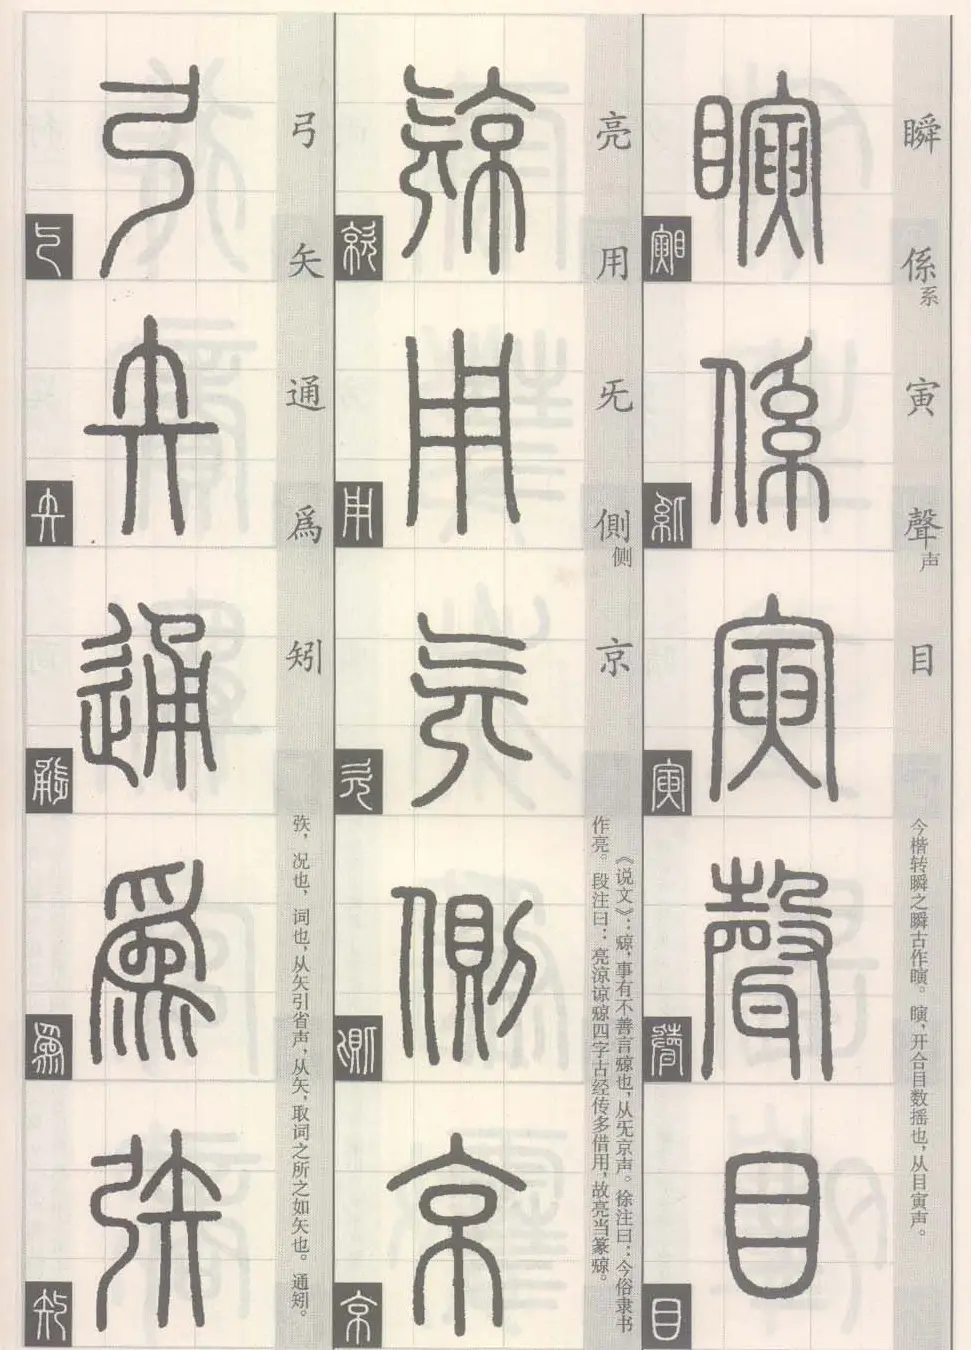 瞬 係系 寅 聲声 目
今楷转瞬之瞬古作瞚。瞚，开合目数摇也，从目寅声。
瞚
係
寅
聲
目
亮 用 旡 側侧 京
《说文》：𣄴，事有不善言𣄴也，从旡京声。徐注曰：今俗隶书
作亮。段注曰：亮涼谅𣄴四字古经传多借用，故亮当篆𣄴。
𣄴
用
旡
側
京
弓 矢 通 爲 矧
弞，况也，词也，从矢引省声，从矢，取词之所之如矢也。通矧。
弓
矢
通
爲
矤